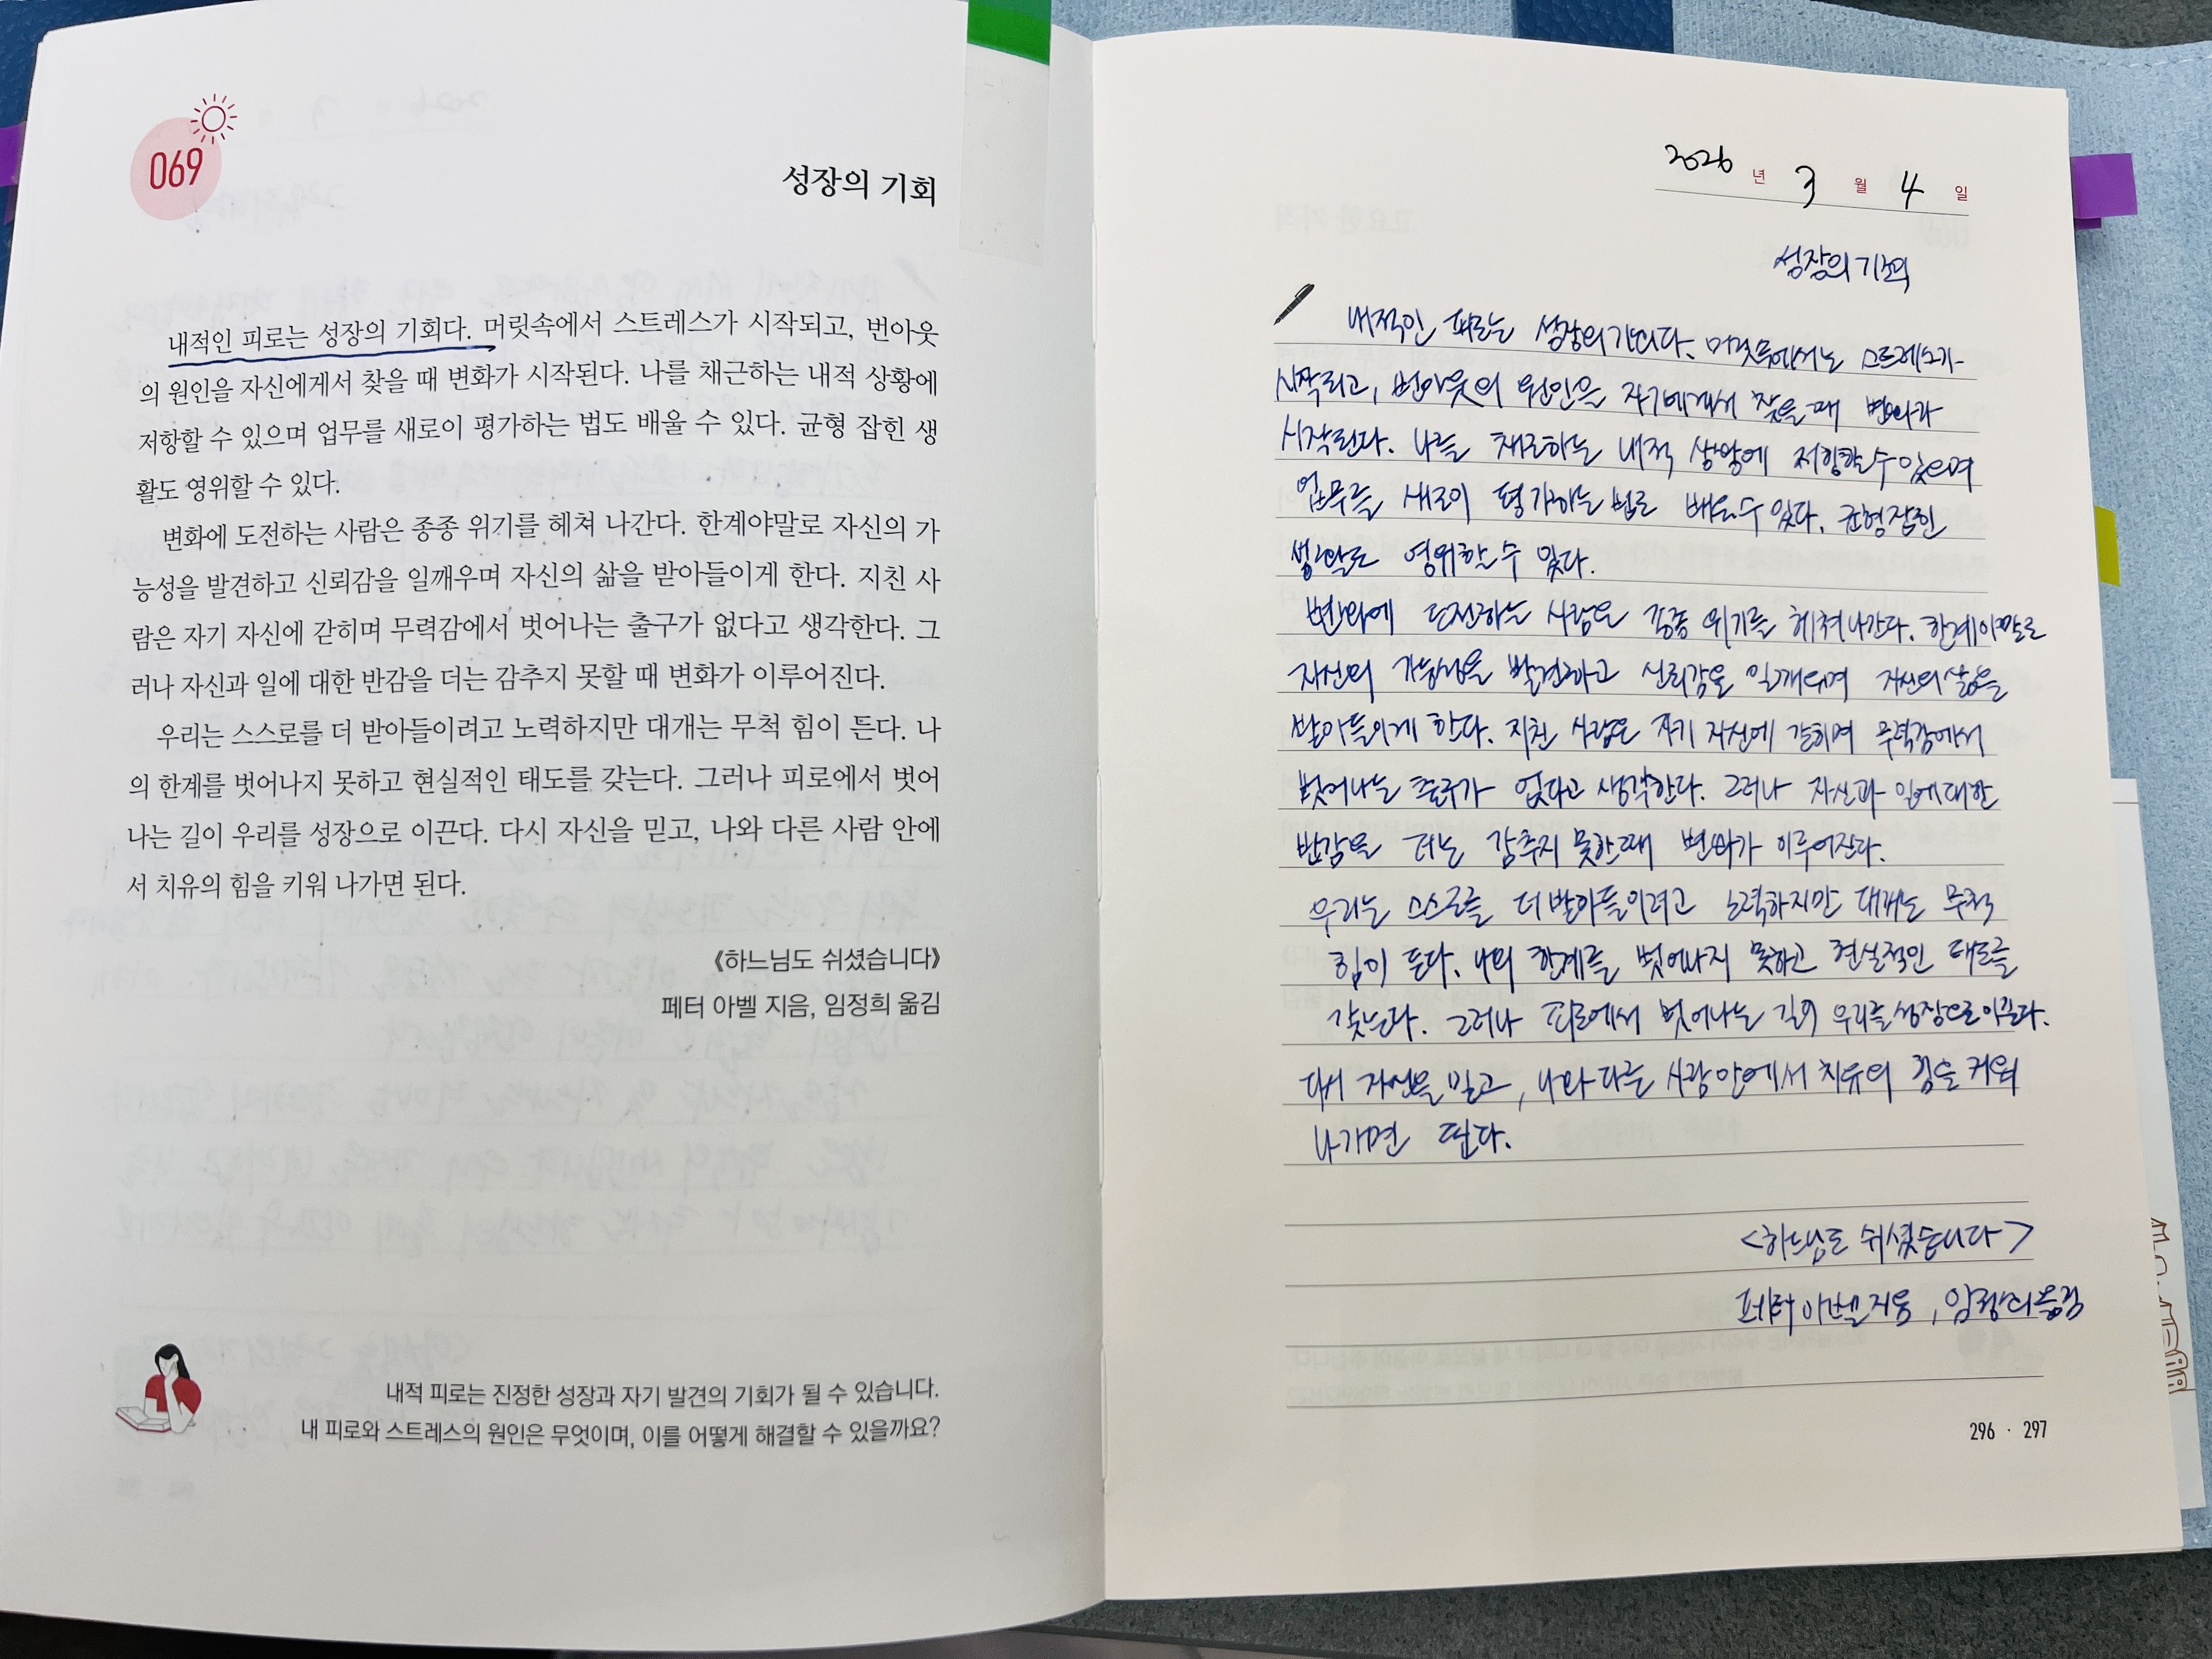 069
성장의 기회
내적인 피로는 성장의 기회다. 머릿속에서 스트레스가 시작되고, 번아웃
의 원인을 자신에게서 찾을 때 변화가 시작된다. 나를 채근하는 내적 상황에
저항할 수 있으며 업무를 새로이 평가하는 법도 배울 수 있다. 균형 잡힌 생
활도 영위할 수 있다.
변화에 도전하는 사람은 종종 위기를 헤쳐 나간다. 한계야말로 자신의 가
능성을 발견하고 신뢰감을 일깨우며 자신의 삶을 받아들이게 한다. 지친 사
람은 자기 자신에 갇히며 무력감에서 벗어나는 출구가 없다고 생각한다. 그
러나 자신과 일에 대한 반감을 더는 감추지 못할 때 변화가 이루어진다.
우리는 스스로를 더 받아들이려고 노력하지만 대개는 무척 힘이 든다. 나
의 한계를 벗어나지 못하고 현실적인 태도를 갖는다. 그러나 피로에서 벗어
나는 길이 우리를 성장으로 이끈다. 다시 자신을 믿고, 나와 다른 사람 안에
서 치유의 힘을 키워 나가면 된다.
《하느님도 쉬셨습니다》
페터 아벨 지음, 임정희 옮김
내적 피로는 진정한 성장과 자기 발견의 기회가 될 수 있습니다.
내 피로와 스트레스의 원인은 무엇이며, 이를 어떻게 해결할 수 있을까요?
2026 년 3 월 4 일
성장의 기회
내적인 피로는 성장의 기회다. 머릿속에서는 스트레스가
시작되고, 번아웃의 원인을 자기에게서 찾을 때 변화가
시작된다. 나를 채근하는 내적 상황에 저항할 수 있으며
업무를 새로이 평가하는 법도 배울 수 있다. 균형 잡힌
생활도 영위할 수 있다.
변화에 도전하는 사람은 종종 위기를 헤쳐 나간다. 한계야말로
자신의 가능성을 발견하고 신뢰감을 일깨우며 자신의 삶을
받아들이게 한다. 지친 사람은 자기 자신에 갇히며 무력감에서
벗어나는 출구가 없다고 생각한다. 그러나 자신과 일에 대한
반감을 더는 감추지 못할 때 변화가 이루어진다.
우리는 스스로를 더 받아들이려고 노력하지만 대개는 무척
힘이 든다. 나의 한계를 벗어나지 못하고 현실적인 태도를
갖는다. 그러나 피로에서 벗어나는 길이 우리를 성장으로 이끈다.
다시 자신을 믿고, 나와 다른 사람 안에서 치유의 힘을 키워
나가면 된다.
<하느님도 쉬셨습니다>
페터 아벨 지음, 임정희 옮김
296 · 297